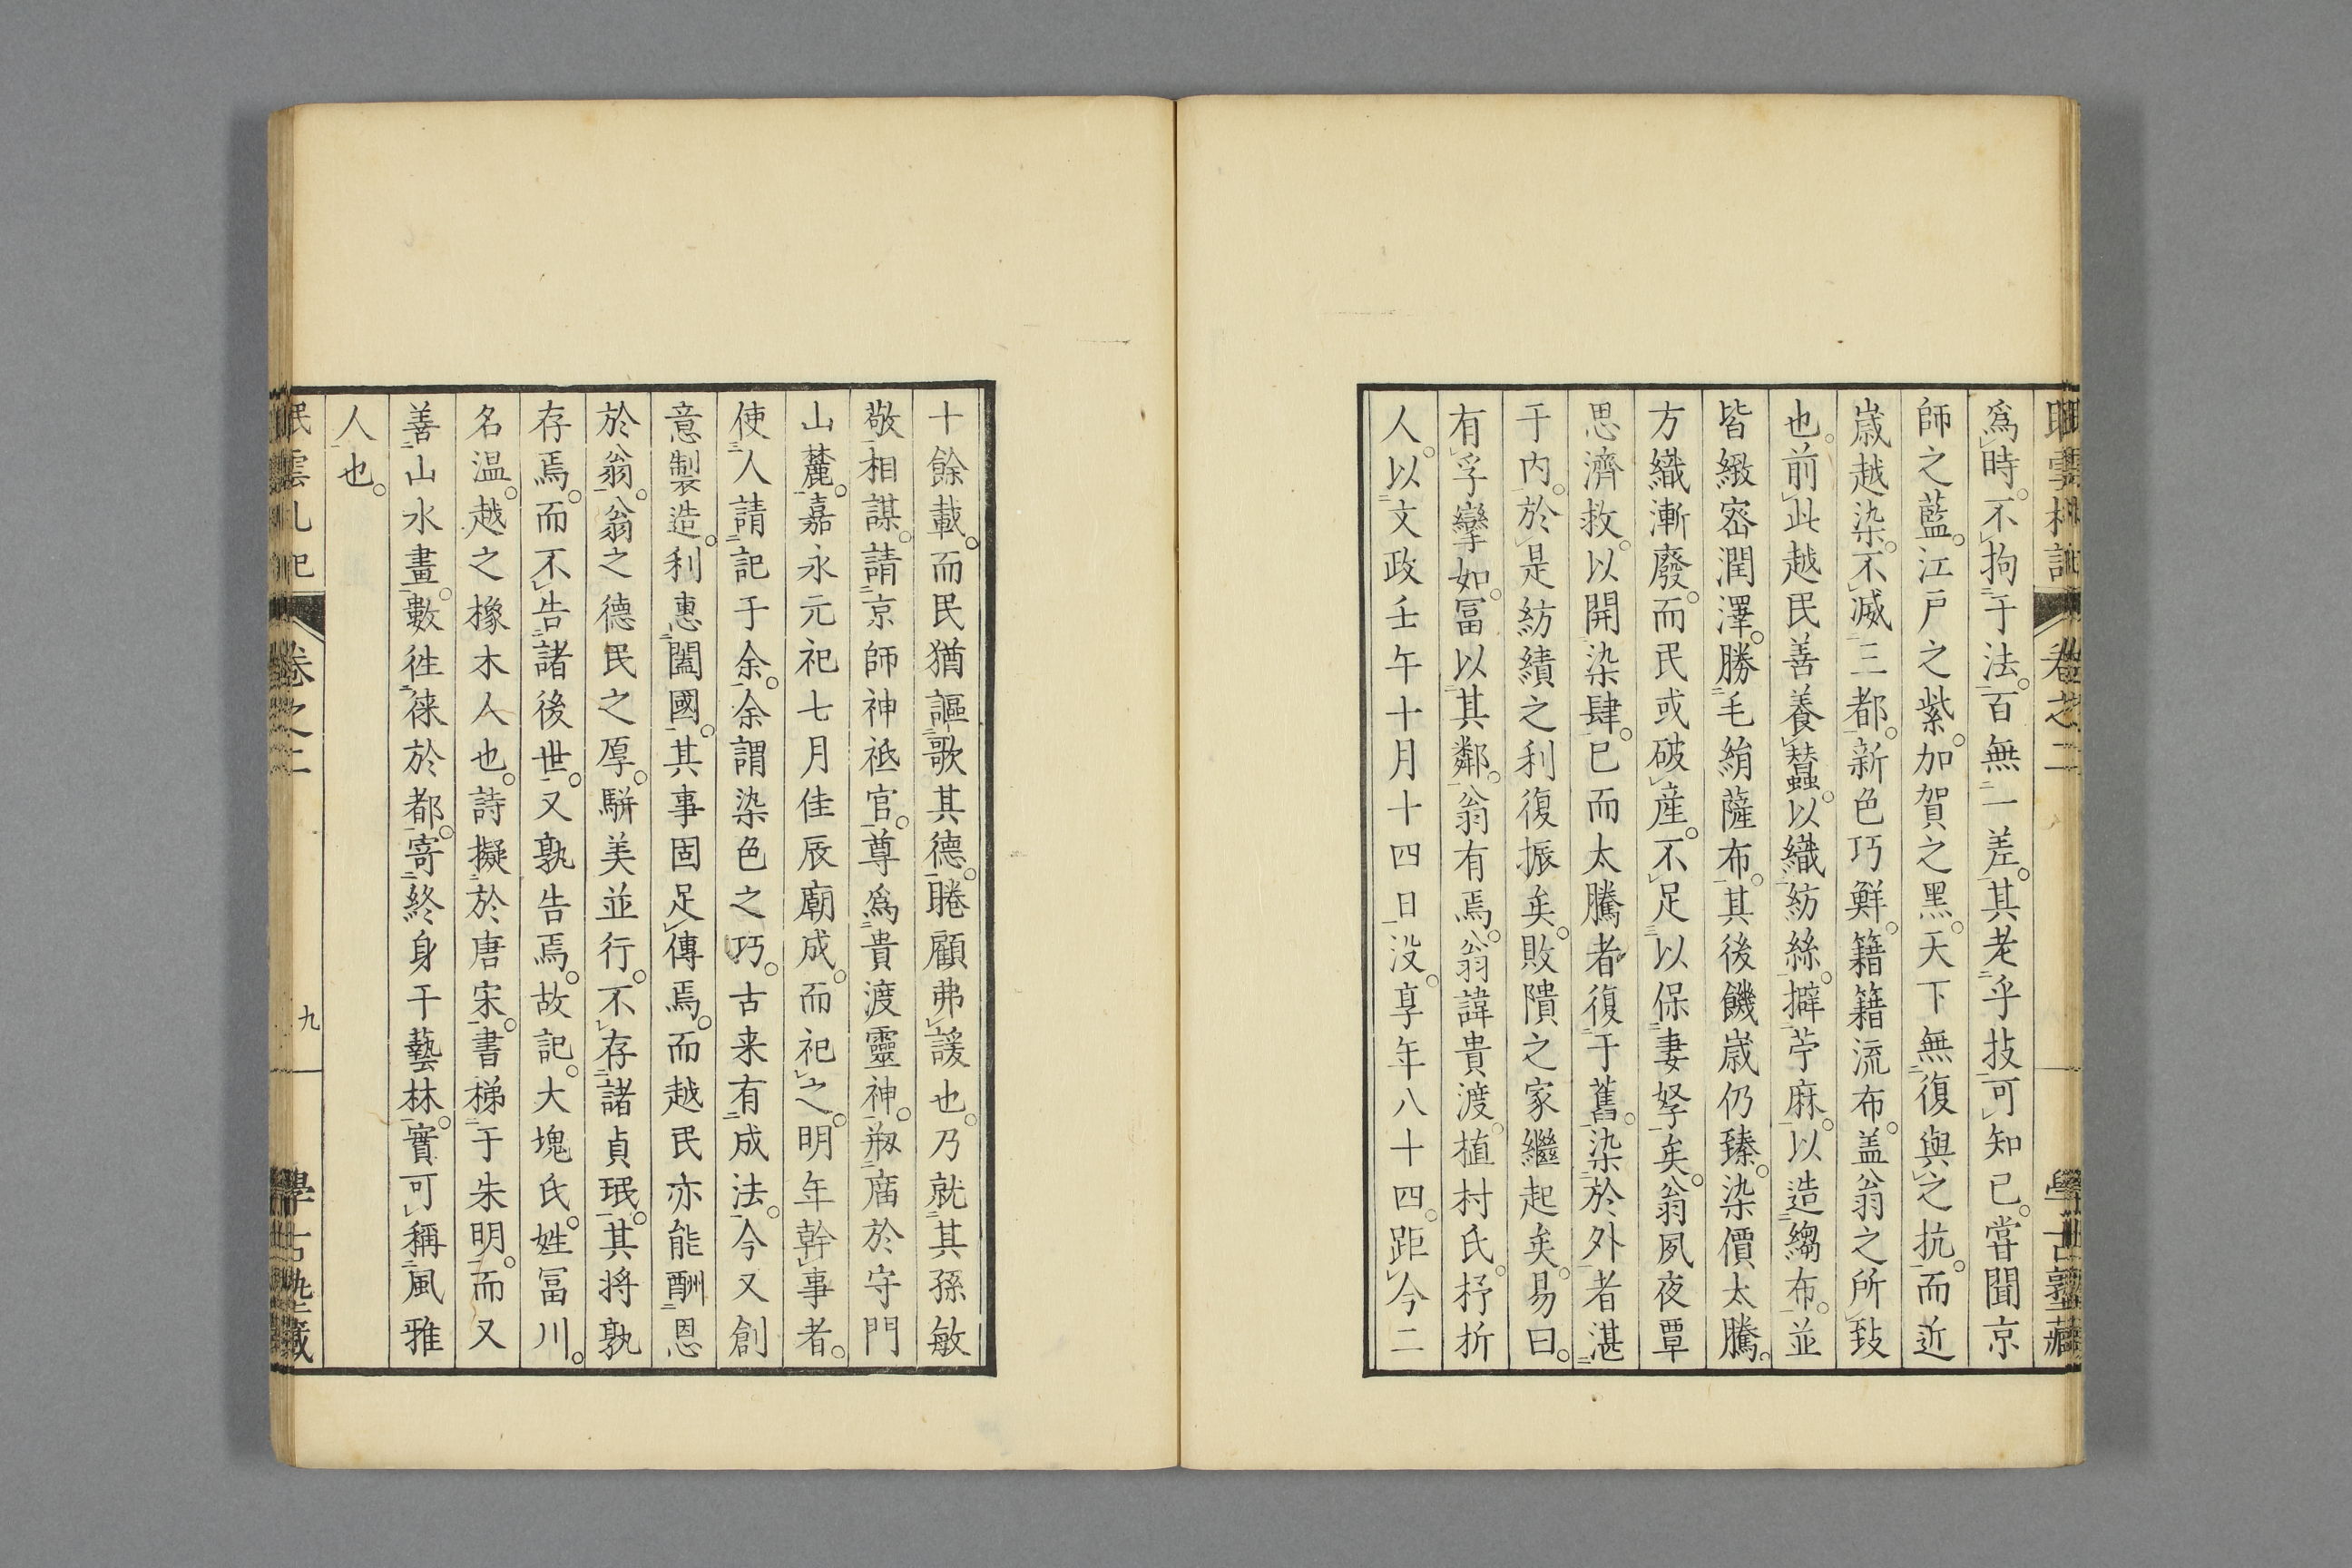 爲時。不拘于法。百無一差。其老乎技可知已。嘗聞京
師之藍。江戸之紫。加賀之黑。天下無復與之抗。而近
歳越染。不減三都。新色巧鮮。籍籍流布。盖翁之所致
也。前此越民善養蠶。以織紡絲。擗苧麻。以造縐布。並
皆緻密潤澤。勝毛絹薩布。其後饑歳仍臻。染價太騰。
方織漸廢。而民或破產。不足以保妻孥矣。翁夙夜覃
思濟救。以開染肆。已而太騰者復于舊。染於外者湛
于内。於是紡績之利復振矣。敗隤之家繼起矣。易曰。
有孚攣如。冨以其鄰。翁有焉。翁諱貴渡。植村氏。杼折
人。以文政壬午十月十四日没。享年八十四。距今二
十餘載。而民猶謳歌其德。睠顧弗諼也。乃就其孫敏
敬相謀。請京師神祗官。尊爲貴渡靈神。剏庿於守門
山麓。嘉永元祀七月佳辰廟成。而祀之。明年幹事者。
使人請記于余。余謂染色之巧。古来有成法。今又創
意製造。利惠闔國。其事固足傳焉。而越民亦能酬恩
於翁。翁之德民之厚。駢美並行。不存諸貞珉。其将孰
存焉。而不告諸後世。又孰告焉。故記。大塊氏。姓冨川。
名温。越之橡木人也。詩擬於唐宋。書梯于朱明。而又
善山水畫。數徃徠於都。寄終身于藝林。實可稱風雅
人也。
卷之二
九